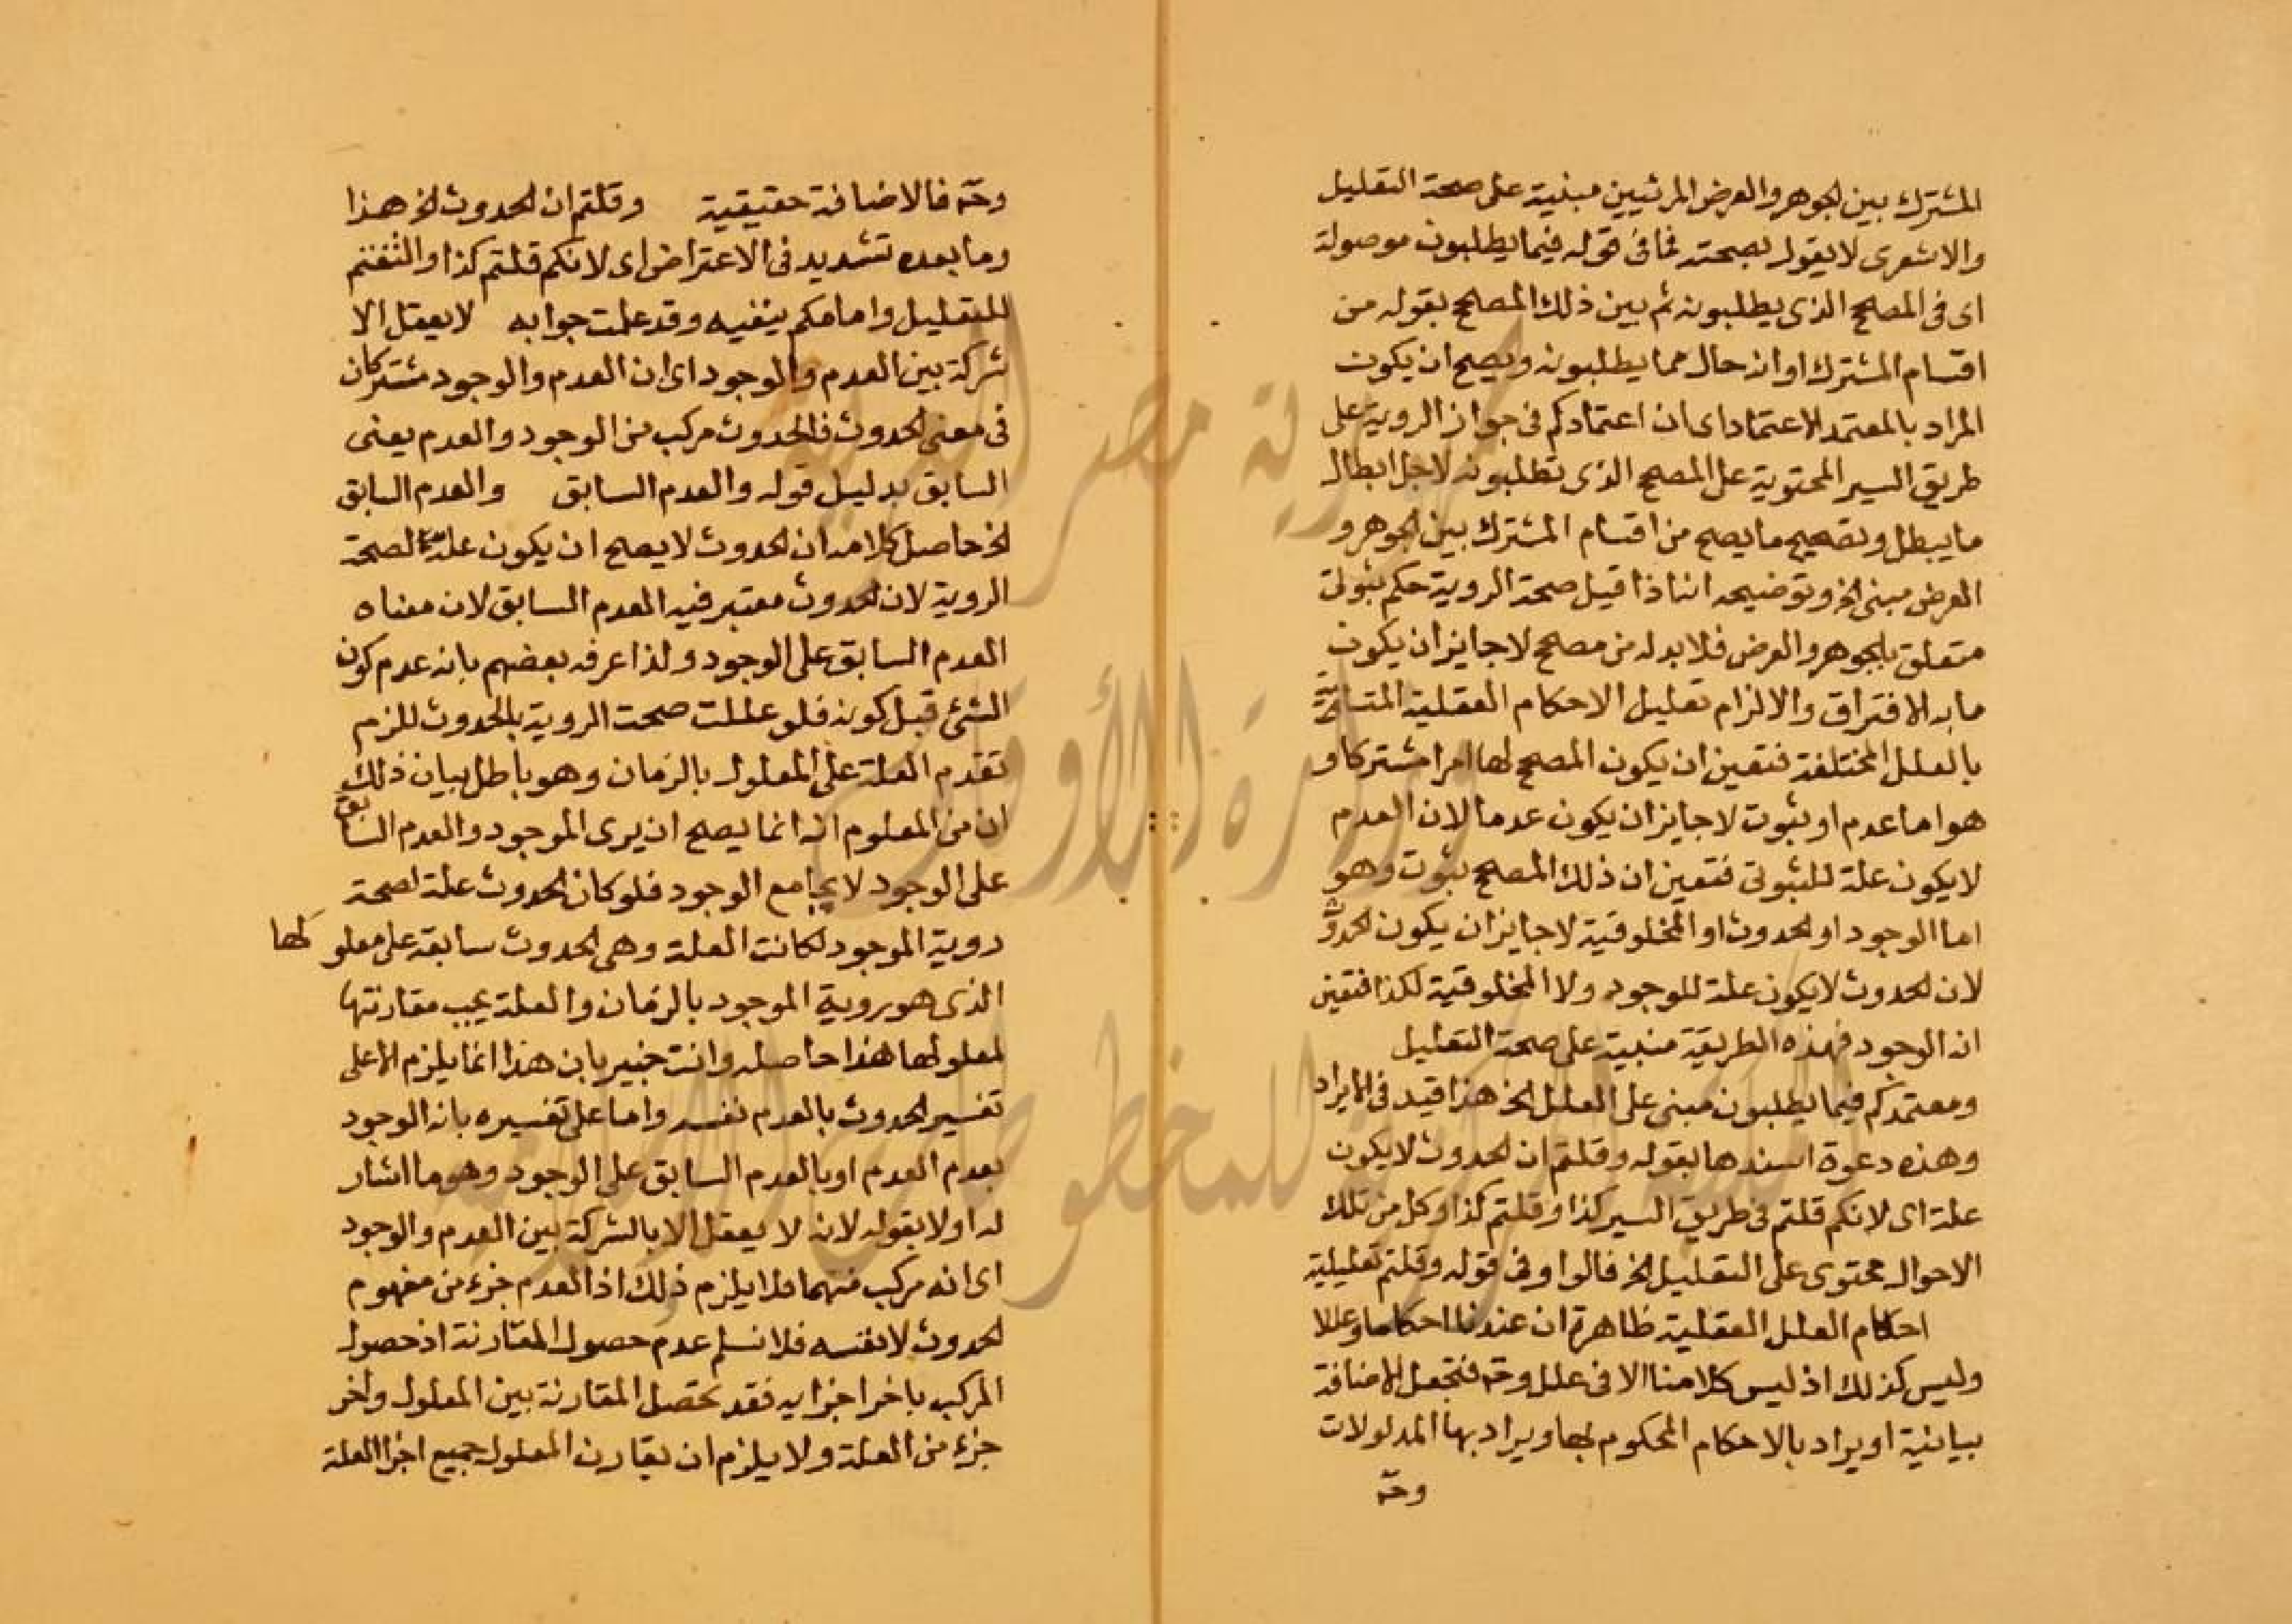 المشترك بين الجوهر والعرض المرئيين مبنية على صحة التعليل
والاشعرى لا يقول بصحته فما فى قوله فيما يطلبون موصولة
اى فى المصحح الذى يطلبونه ثم بين ذلك المصحح بقوله من
اقسام المشترك او انه حال مما يطلبونه ويصح ان يكون
المراد بالمعتمد الاعتماد اى ان اعتمادكم فى جواز الروية على
طريق السبر المحتوية على المصحح الذى تطلبونه لاجل ابطال
ما يبطل وتصحيح ما يصح من اقسام المشترك بين الجوهر و
العرض مبنى الخ وتوضيحه اننا اذا قيل صحة الروية حكم ثبوتى
متعلق بالجوهر والعرض فلا بد له من مصحح لا جايز ان يكون
ما به الافتراق والا لزام تعليل الاحكام العقلية المتساوية
بالعلل المختلفة فتعين ان يكون المصحح لها امرا مشتركا و
هو اما عدم او ثبوت لا جايز ان يكون عدما لان العدم
لا يكون علة للثبوتى فتعين ان ذلك المصحح ثبوت وهو
اما الوجود او الحدوث او المخلوقية لا جايز ان يكون الحدوث
لان الحدوث لا يكون علة للوجود ولا المخلوقية لكذا فتعين
انه الوجود فهذه الطريقة منبية على صحة التعليل
ومعتمدكم فيما يطلبون مبنى على العلل الخ هذا قيد فى الايراد
وهذه دعوة اسندها بقوله وقلتم ان الحدوث لا يكون
علة اى لانكم قلتم فى طريق السبر كذا وقلتم كذا وكل من تلك
الاحوال محتوى على التعليل الخ فالواو فى قوله وقلتم تعليلية
احكام العلل العقلية ظاهرة ان عندنا احكاما وعللا
وليس كذلك اذ ليس كلامنا الا فى علل وح فتجعل الاضافة
بيانية او يراد بالاحكام المحكوم بها ويراد بها المدلولات
وح
وح فالاضافة حقيقية وقلتم ان الحدوث الخ هذا
وما بعده تشديد فى الاعتراض اى لانكم قلتم كذا
للتعليل وامامكم ينفيه وقد علمت جوابه لا يعقل الا
شركة بين العدم والوجود اى ان العدم والوجود مشتركان
فى معنى الحدوث فالحدوث مركب من الوجود والعدم يعنى
السابق بدليل قوله والعدم السابق والعدم السابق
الخ حاصل كلامه ان الحدوث لا يصح ان يكون علة لصحة
الروية لان الحدوث معتبر فيه العدم السابق لان معناه
العدم السابق على الوجود ولذا عرفه بعضهم بانه عدم كون
الشئ قبل كونه فلو عللت صحت الروية بالحدوث للزم
تقدم العلة على المعلول بالزمان وهو باطل بيان ذلك
ان من المعلوم انه انما يصح ان يرى الموجود والعدم السابق
على الوجود لا يجامع الوجود فلو كان الحدوث علة لصحة
روية الموجود لكانت العلة وهى الحدوث سابقة على معلولها
الذى هو روية الموجود بالزمان والعلة يجب مقارنتها
لمعلولها هذا حاصله وانت خبير بان هذا انما يلزم الا على
تفسير الحدوث بالعدم نفسه واما على تفسيره بانه الوجود
بعدم العدم او بالعدم السابق على الوجود وهو ما اشار
له اولا بقوله لانه لا يعقل الا بالشركة بين العدم والوجود
اى انه مركب منهما فلا يلزم ذلك اذ العدم جزء من مفهوم
الحدوث لا نفسه فلا نسلم عدم حصول المقارنة اذ حصول
المركب باخر اجزايه فقد تحصل المقارنة بين المعلول واخر
جزء من العلة ولا يلزم ان يقارن المعلول جميع اجزا العلة